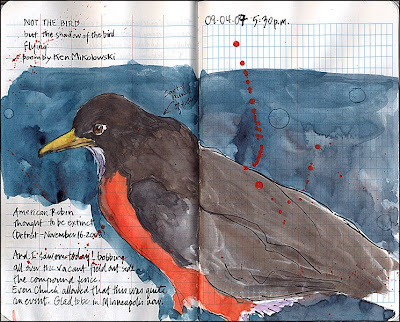 NOT THE BIRD
but the shadow of the bird
flying
poem by Ken Mikolowski
09.04.07 5:30 p.m.
American Robin
thought to be extinct
(Detroit - November 16-
And I saw one today! bobbing
all over the vacant field out side
the compound fence.
Even Chuck allowed that this was quite
an event. Glad to be in Minneapolis now.